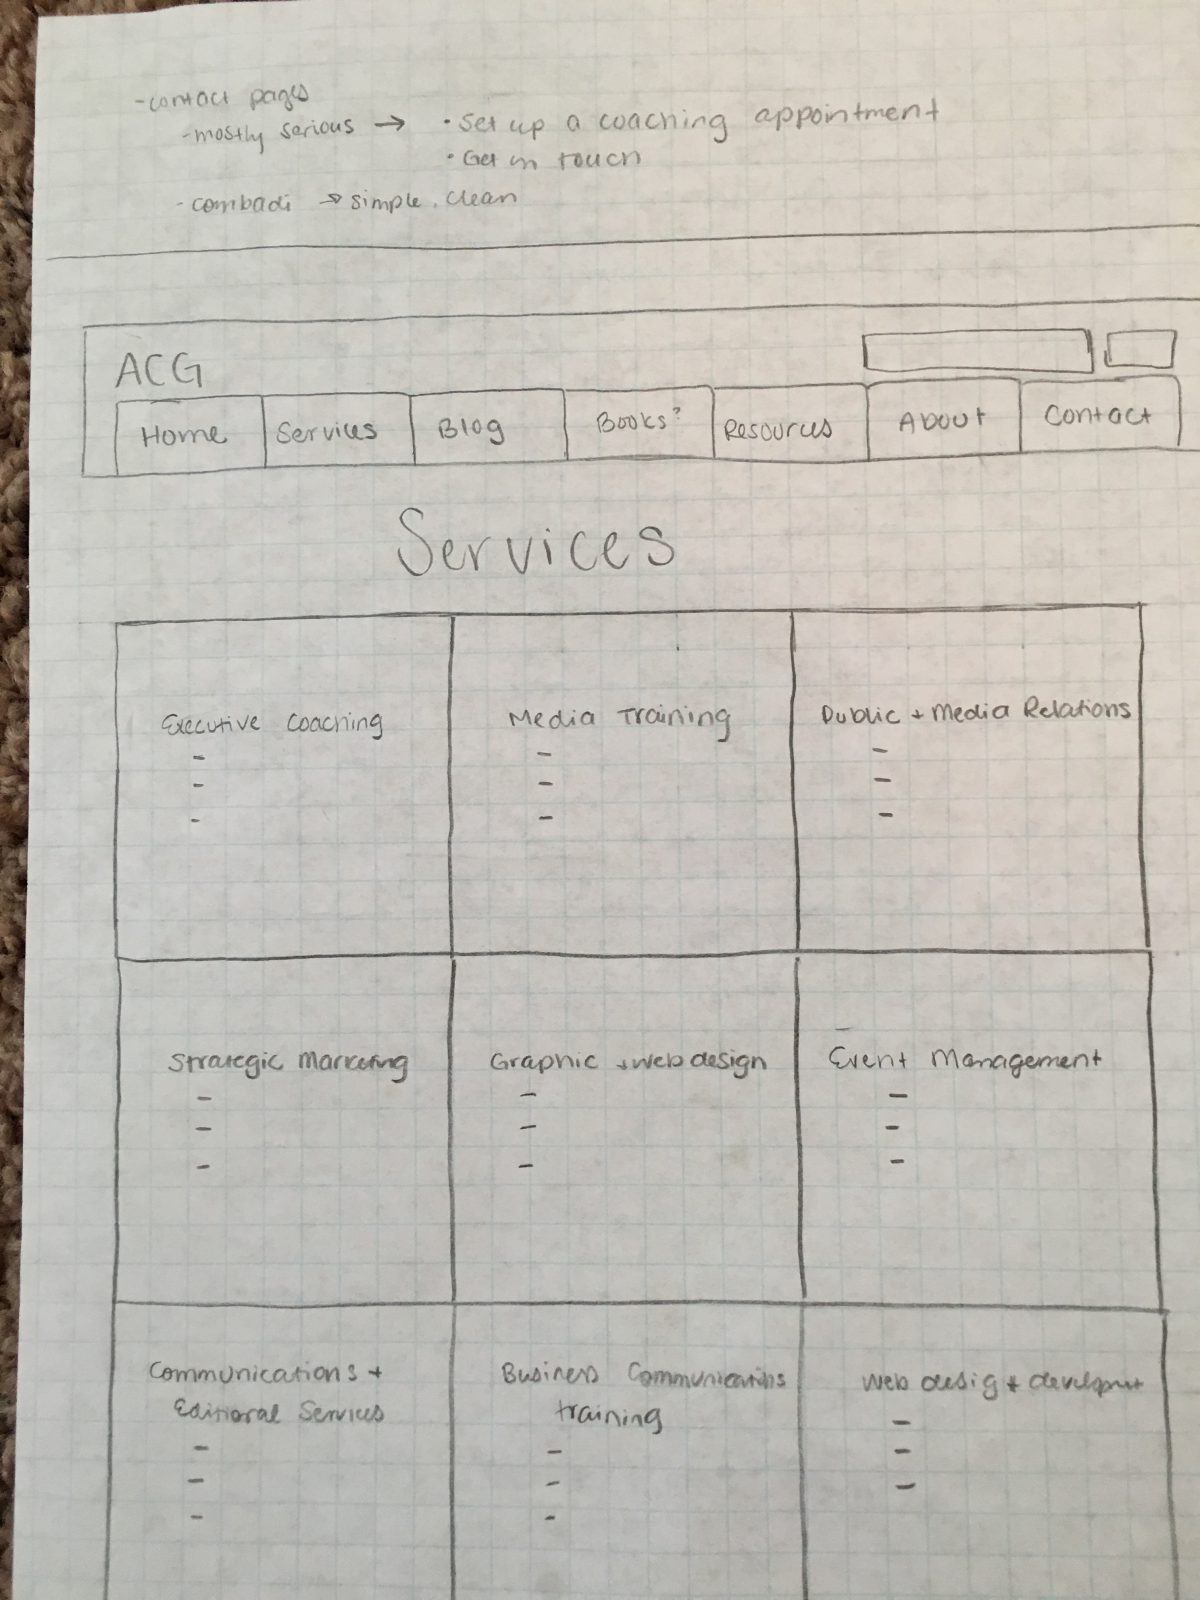 - contact pages
- mostly serious → • Set up a coaching appointment
• Get in touch
- combadi → simple, clean
ACG
Home Services Blog Books? Resources About Contact
Services
Executive Coaching Media Training Public + Media Relations
Strategic Marketing Graphic + web design Event Management
Communications + Business Communications web desig + developmt
Editioral Services training